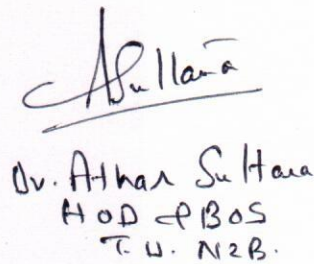 ASultana
Dr. Athar Sultana
HOD & BOS
T.U. NZB.